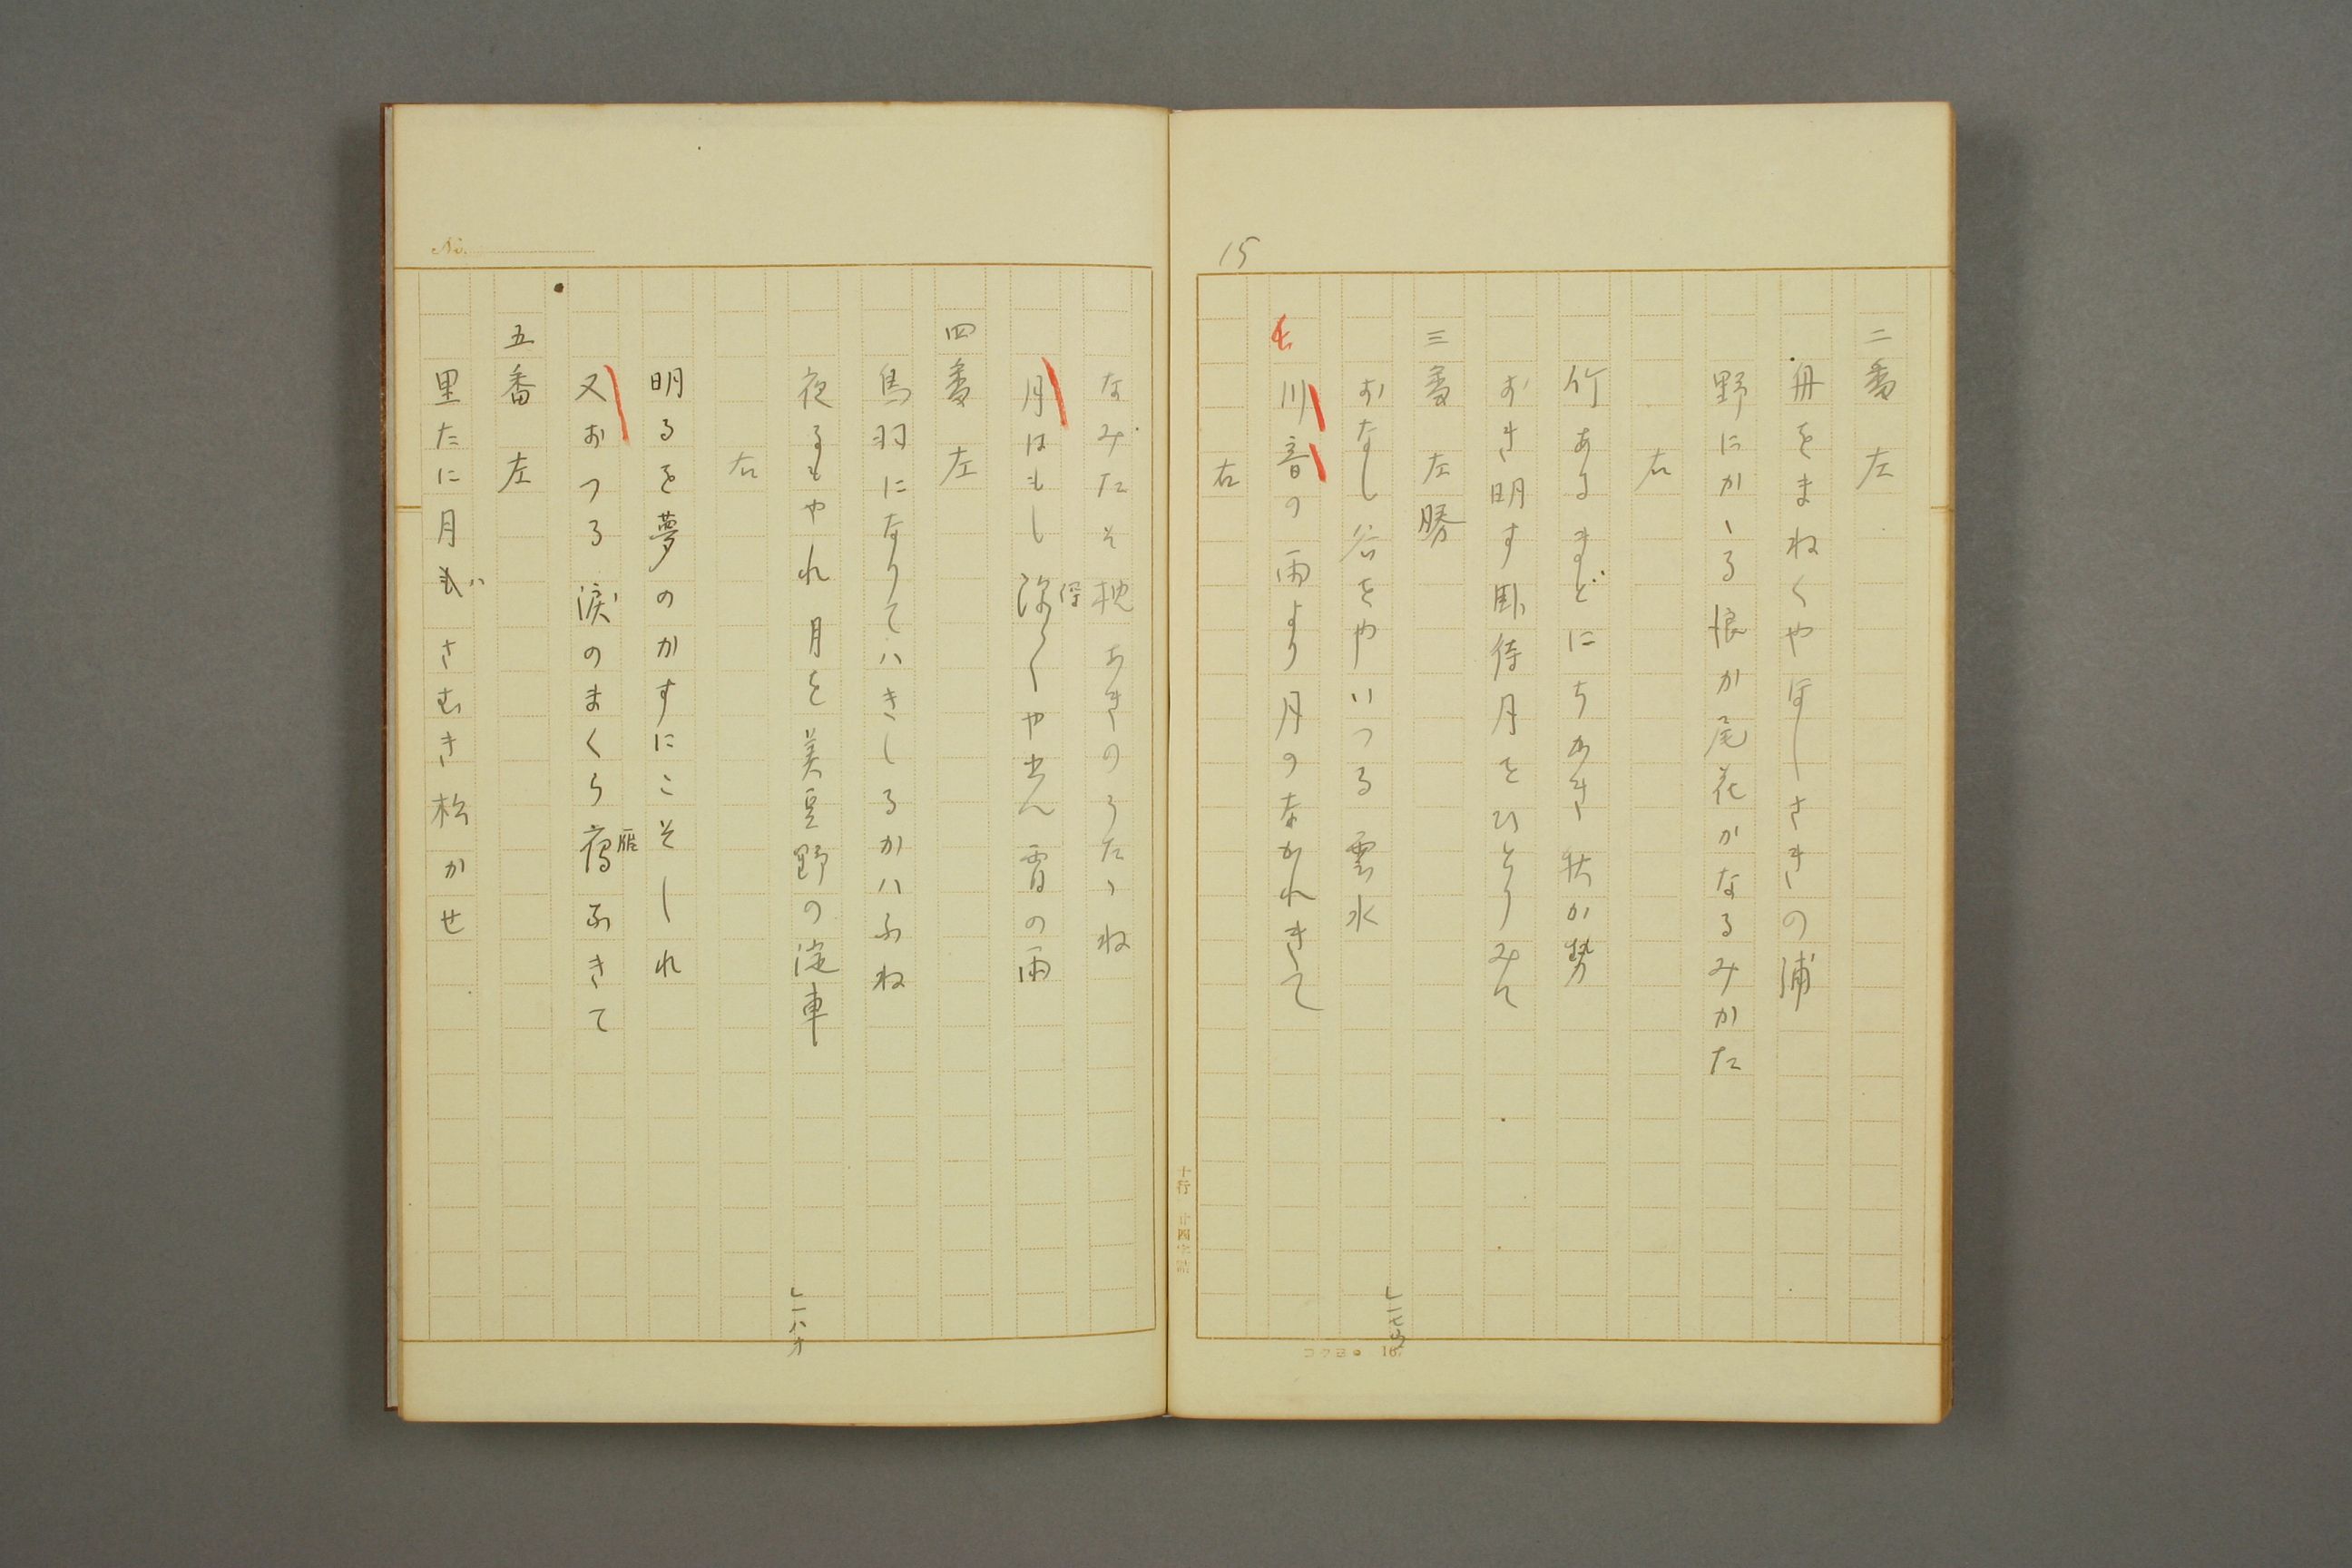 15
二番　左
舟をまねくやほしさきの浦
野にかゝる恨か尾花かなるみかた
右
竹あるまどにちかき秋か勢
おき明す臥待月をひとりみて
三番　左勝
おなし谷をやいつる雲水
川音の雨より月のなかれきて
右
十行 廿四字詰
コクヨ 167
No.
なみたそ枕あきのうたゝね
月はもし
や 宵の雨
四番　左
鳥羽になりてハきしるかハふね
夜るもやれ月を美豆野の淀車
右
」一八オ
明るを夢のかすにこそしれ
又おつる涙のまくら鴈ふきて
雁
五番　左
里たに月もハさむき松かせ